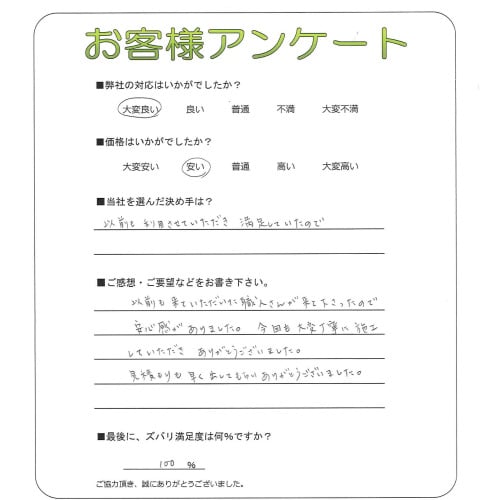 お客様アンケート
■弊社の対応はいかがでしたか？
大変良い 良い 普通 不満 大変不満
■価格はいかがでしたか？
大変安い 安い 普通 高い 大変高い
■当社を選んだ決め手は？
以前も利用させていただき 満足していたので
■ご感想・ご要望などをお書き下さい。
以前も来ていただいた職人さんが来て下さったので
安心感がありました。 今回も大変丁寧に施工
していただき ありがとうございました。
見積もりも早く出してもらいありがとうございました。
■最後に、ズバリ満足度は何％ですか？
100 ％
ご協力頂き、誠にありがとうございました。